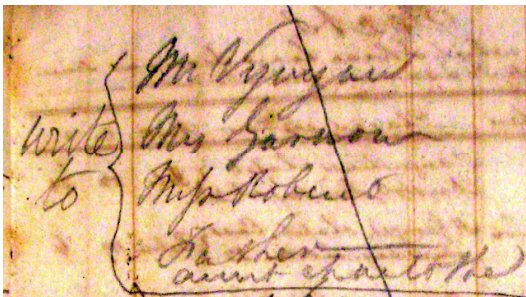 write
to
Mr Vyvyan
Mrs
Miss Roberts
Father
aunt charlotte